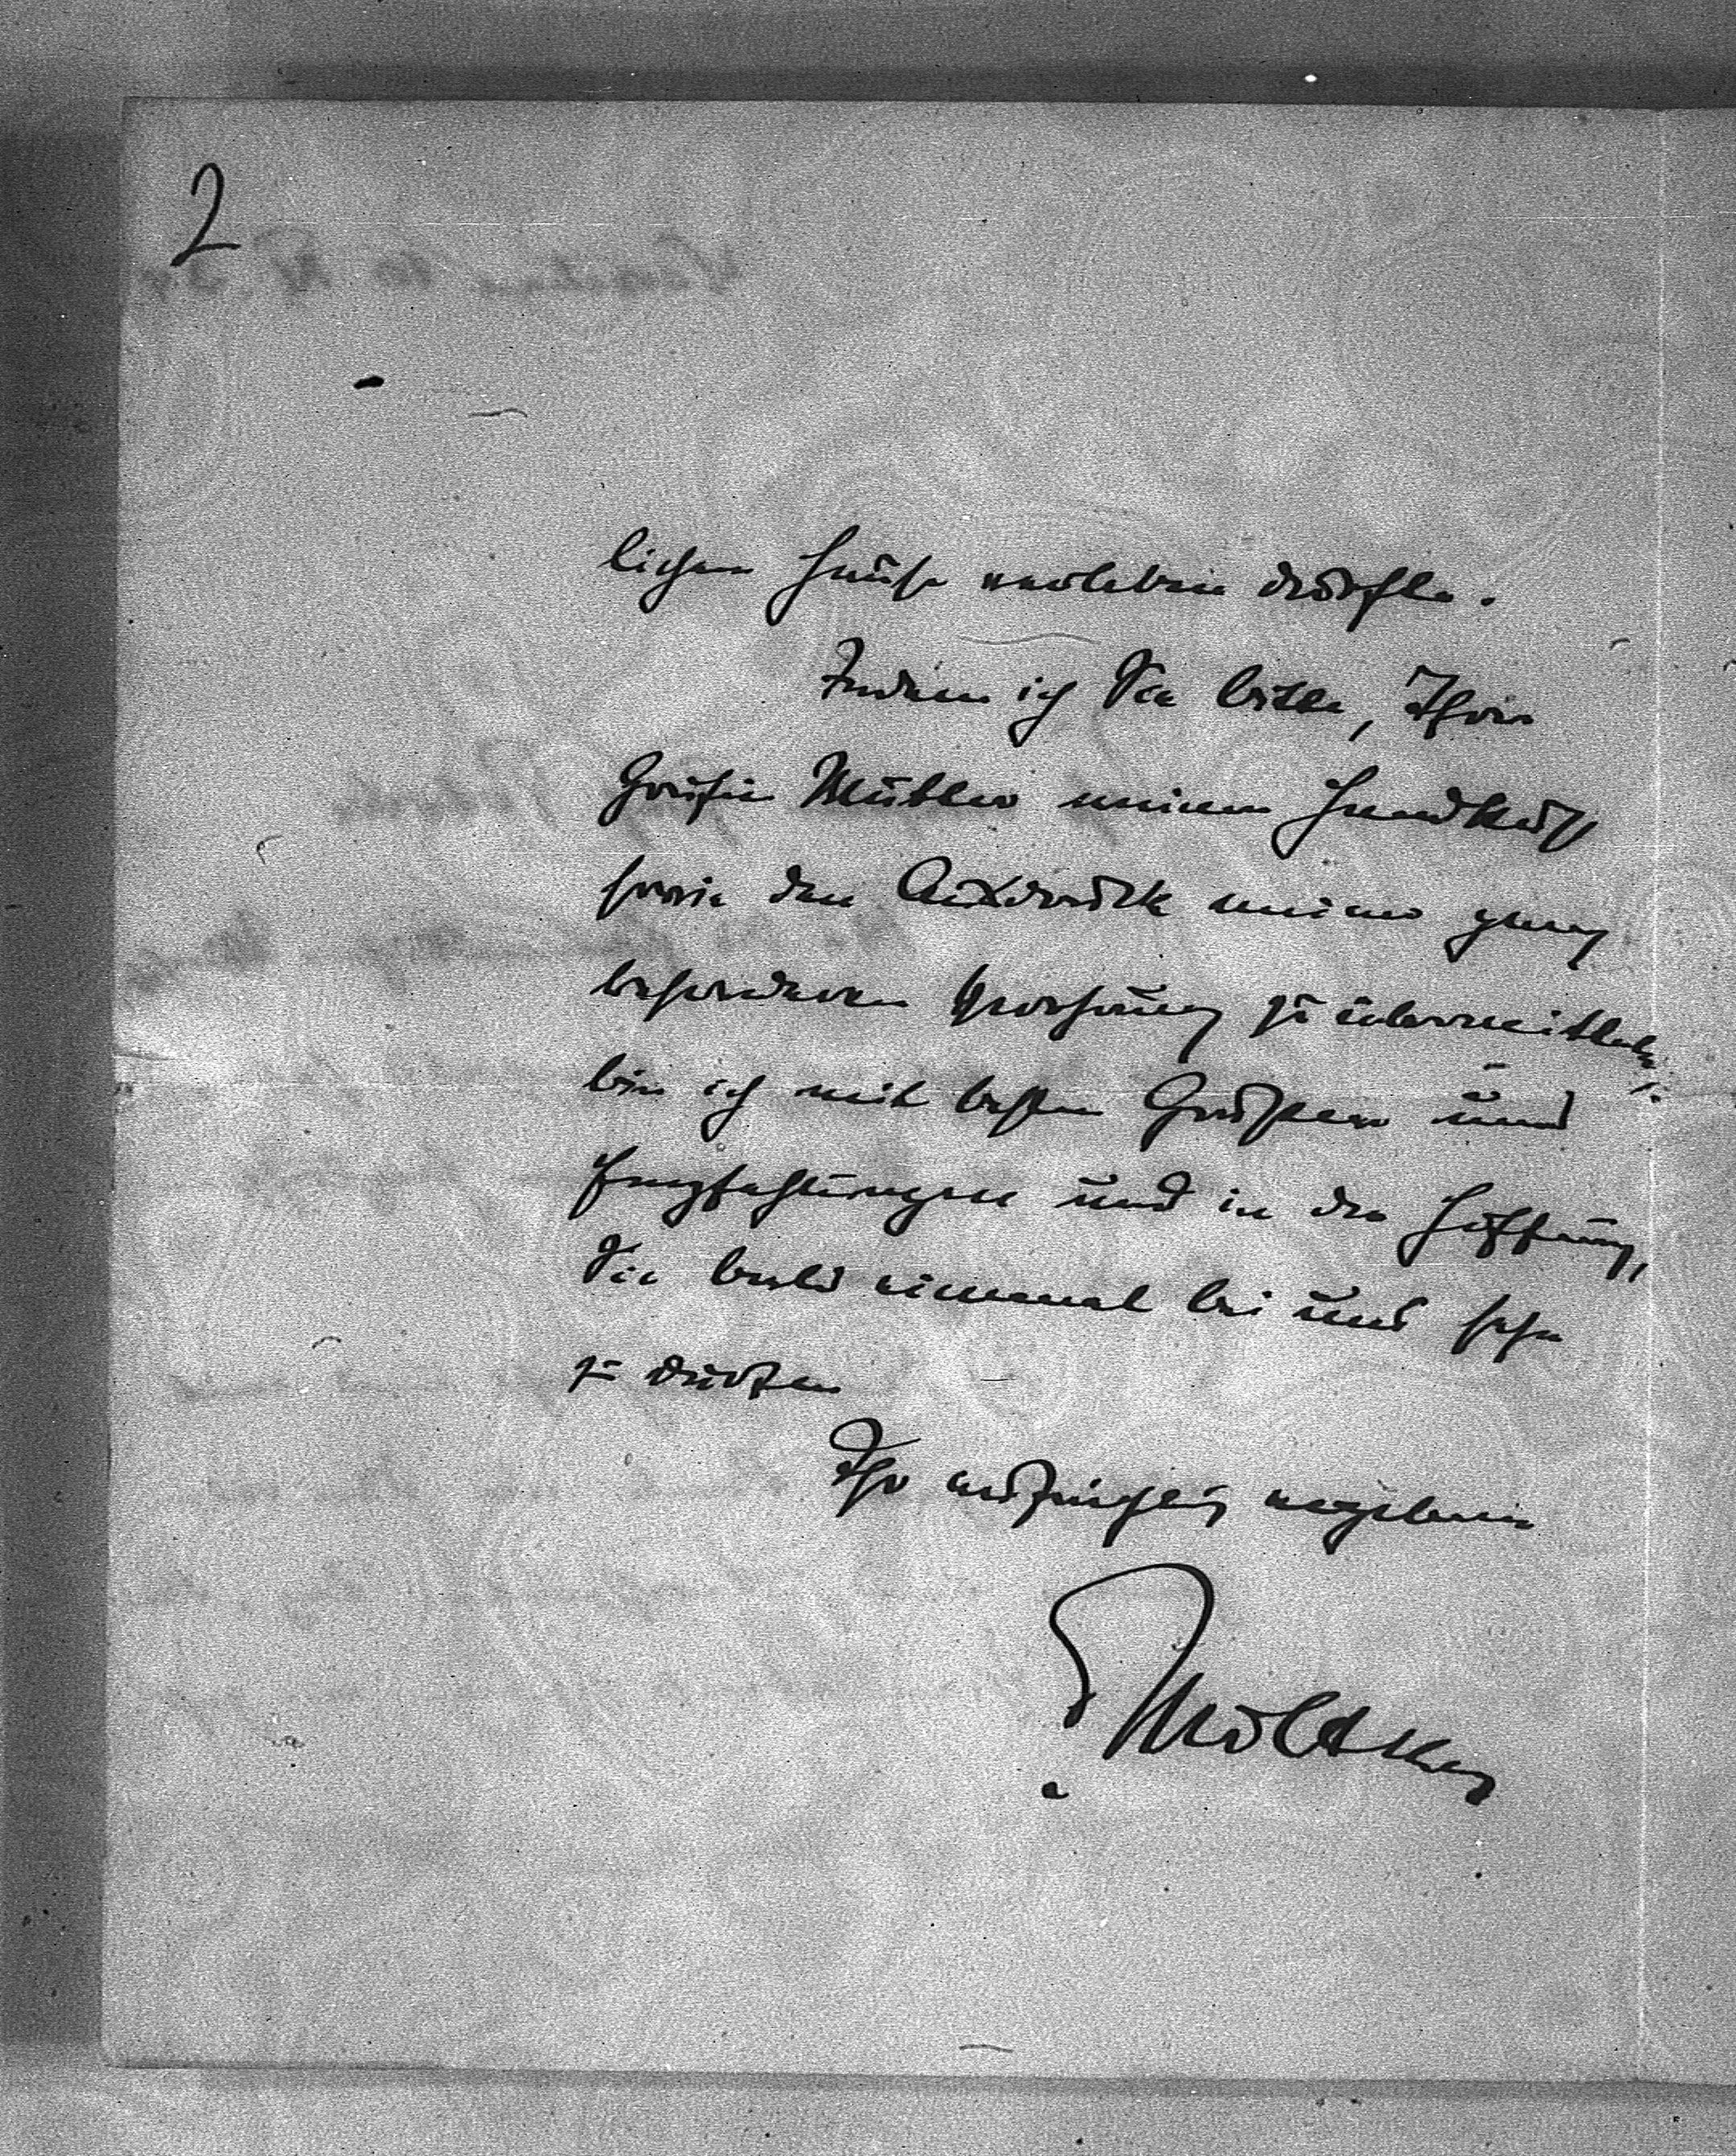 2
lichen Hause verleben durfte.
Indem ich Sie bitte, Ihrer
Gräfin Mutter meinen Handkuß
sowie den Ausdruck meiner ganz
besonderen Verehrung zu übermitteln,
bin ich mit besten Grüßen und
Empfehlungen und in der Hoffnung,
Sie bald einmal bei uns sehn
zu dürfen
Ihr aufrichtig ergebener
Moltke